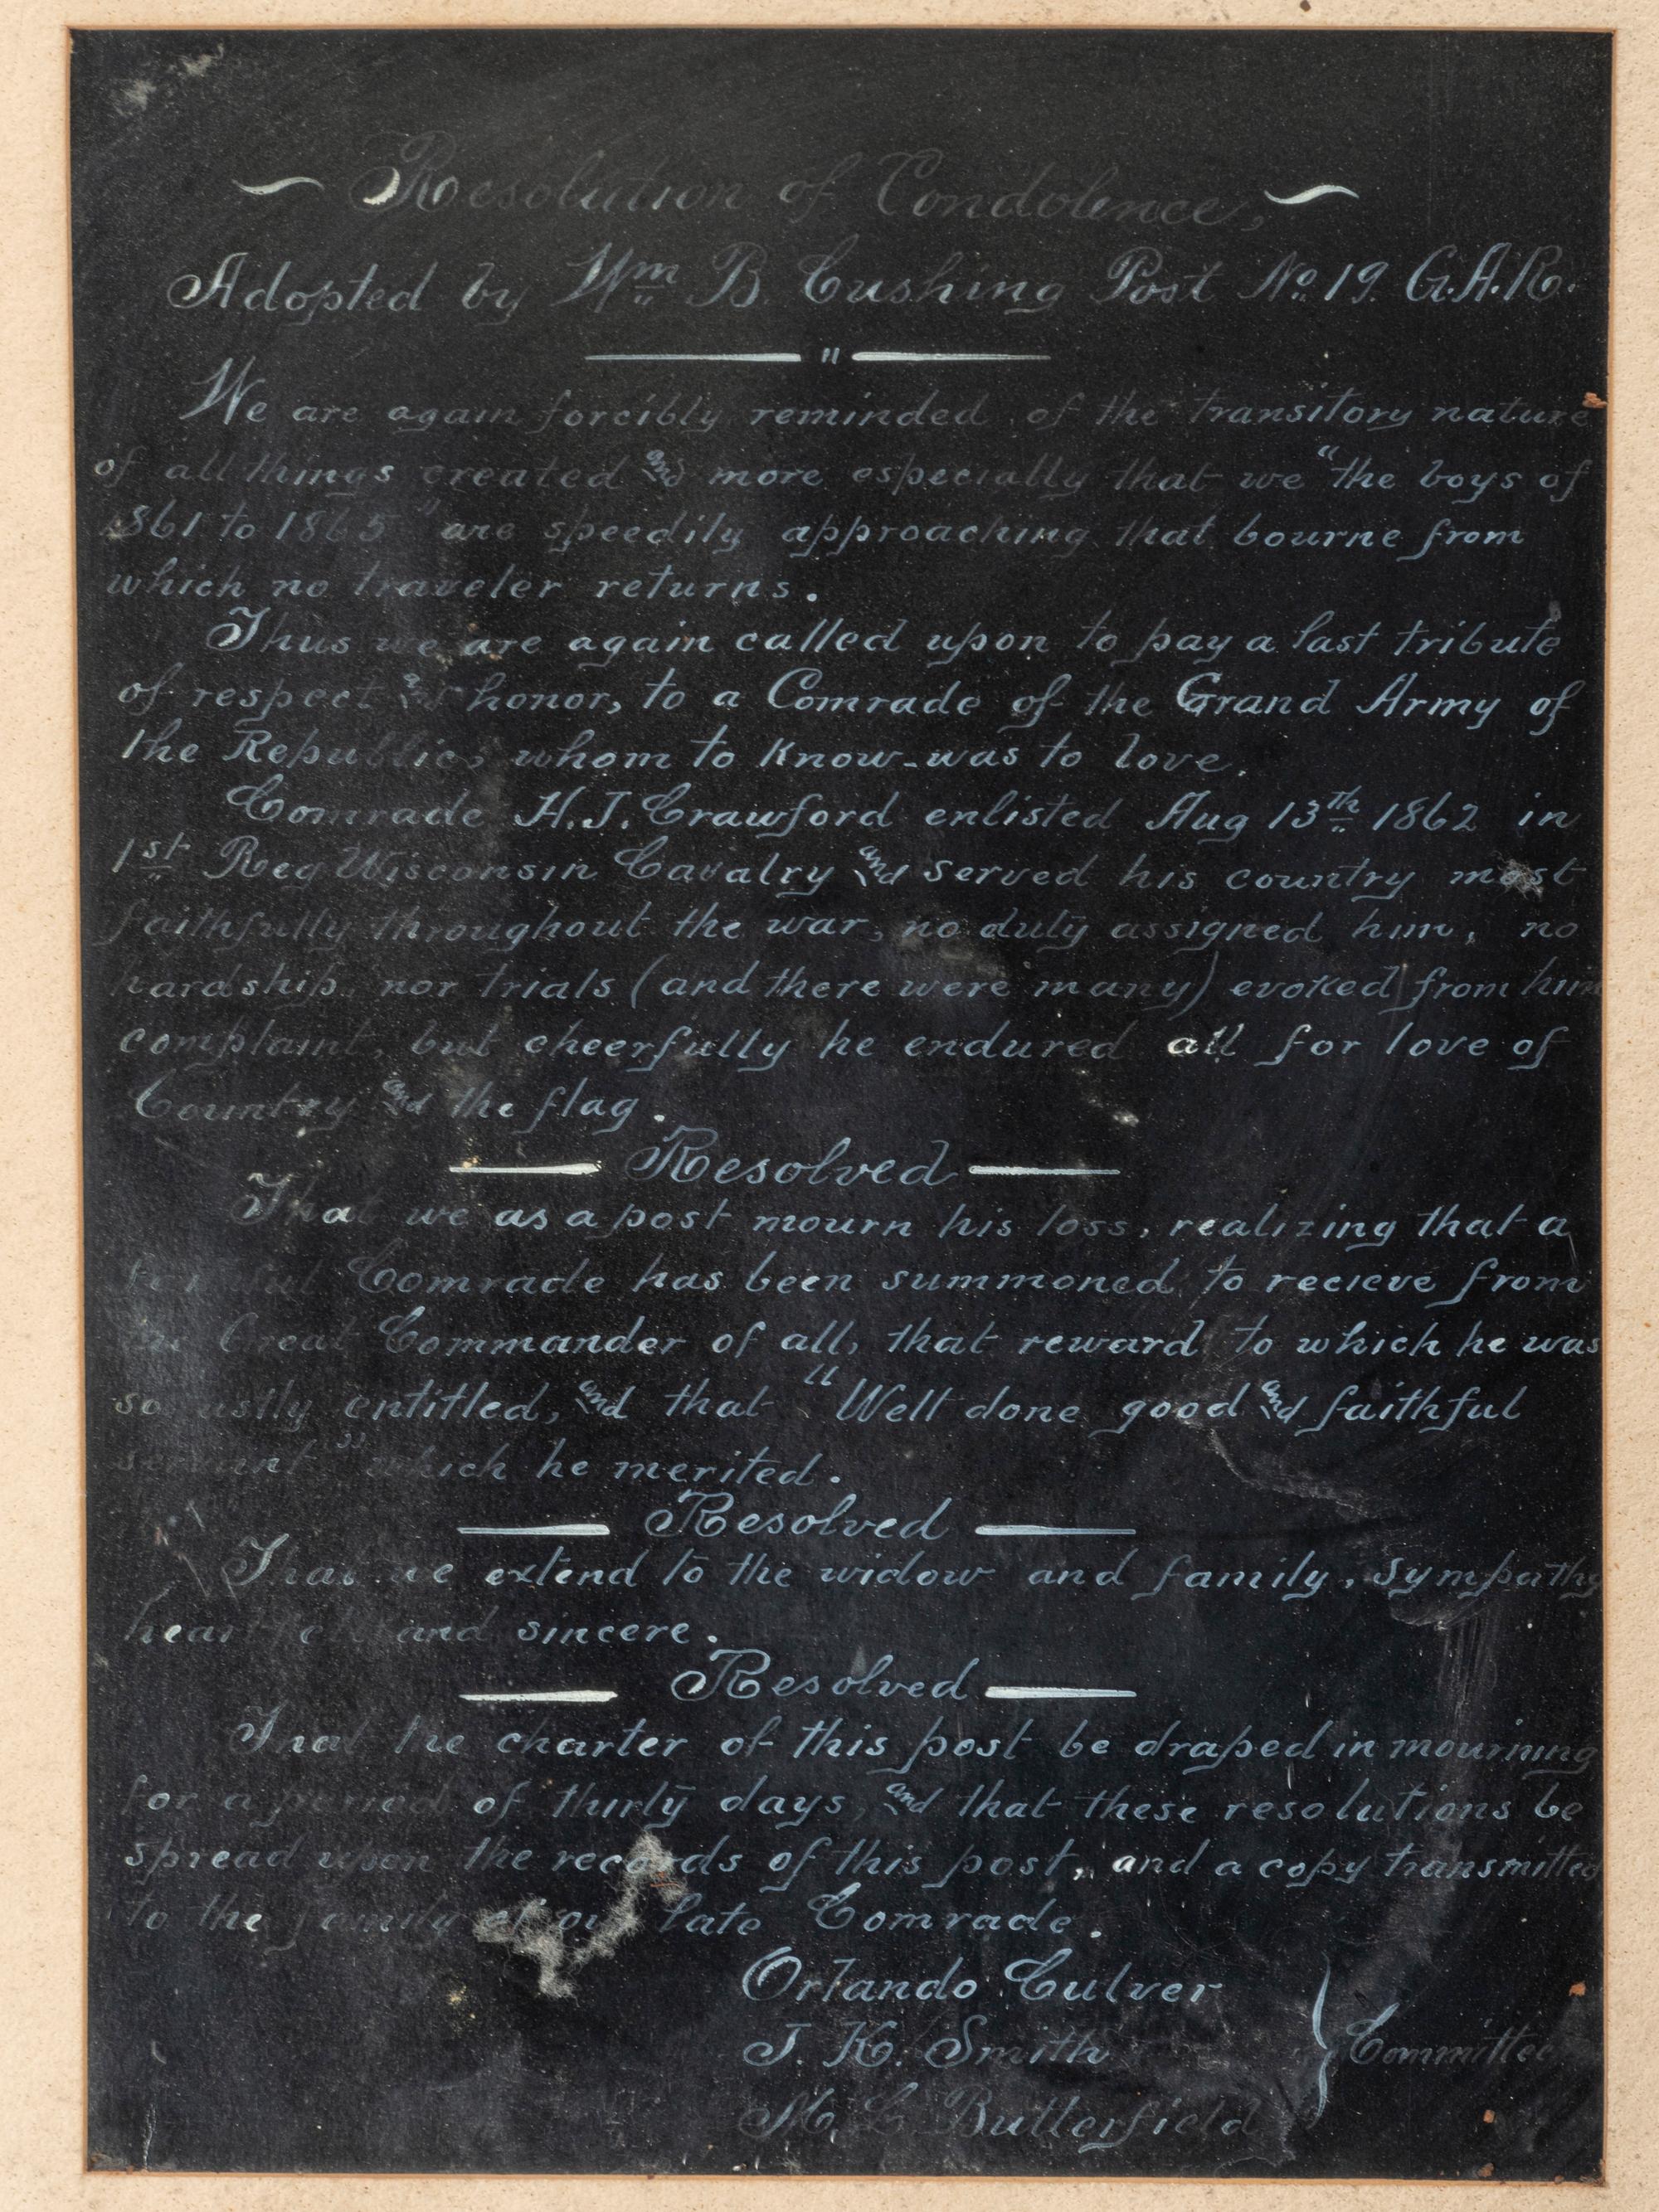 ~ Resolution of Condolence, ~
Adopted by Wm B. Cushing Post No. 19. G.A.R.
"
We are again forcibly reminded of the transitory nature
of all things created and more especially that we "the boys of
1861 to 1865" are speedily approaching that bourne from
which no traveler returns.
Thus we are again called upon to pay a last tribute
of respect and honor, to a Comrade of the Grand Army of
the Republic, whom to know-was to love.
Comrade H. J. Crawford enlisted Aug 13th 1862 in
1st Reg Wisconsin Cavalry and served his country most
faithfully throughout the war, no duty assigned him, no
hardship, nor trials (and there were many) evoked from him
complaint, but cheerfully he endured all for love of
Country and the flag.
Resolved
That we as a post mourn his loss, realizing that a
Comrade has been summoned to recieve from
the Great Commander of all, that reward to which he was
so justly entitled, and that "Well done good and faithful
servant" which he merited.
Resolved
That we extend to the widow and family, sympathy
heartfelt and sincere.
Resolved
That the charter of this post be draped in mourning
for a period of thirty days, and that these resolutions be
spread upon the records of this post, and a copy transmitted
to the family of our late Comrade.
Orlando Culver
J. K. Smith
M. L. Butterfield
} Committee